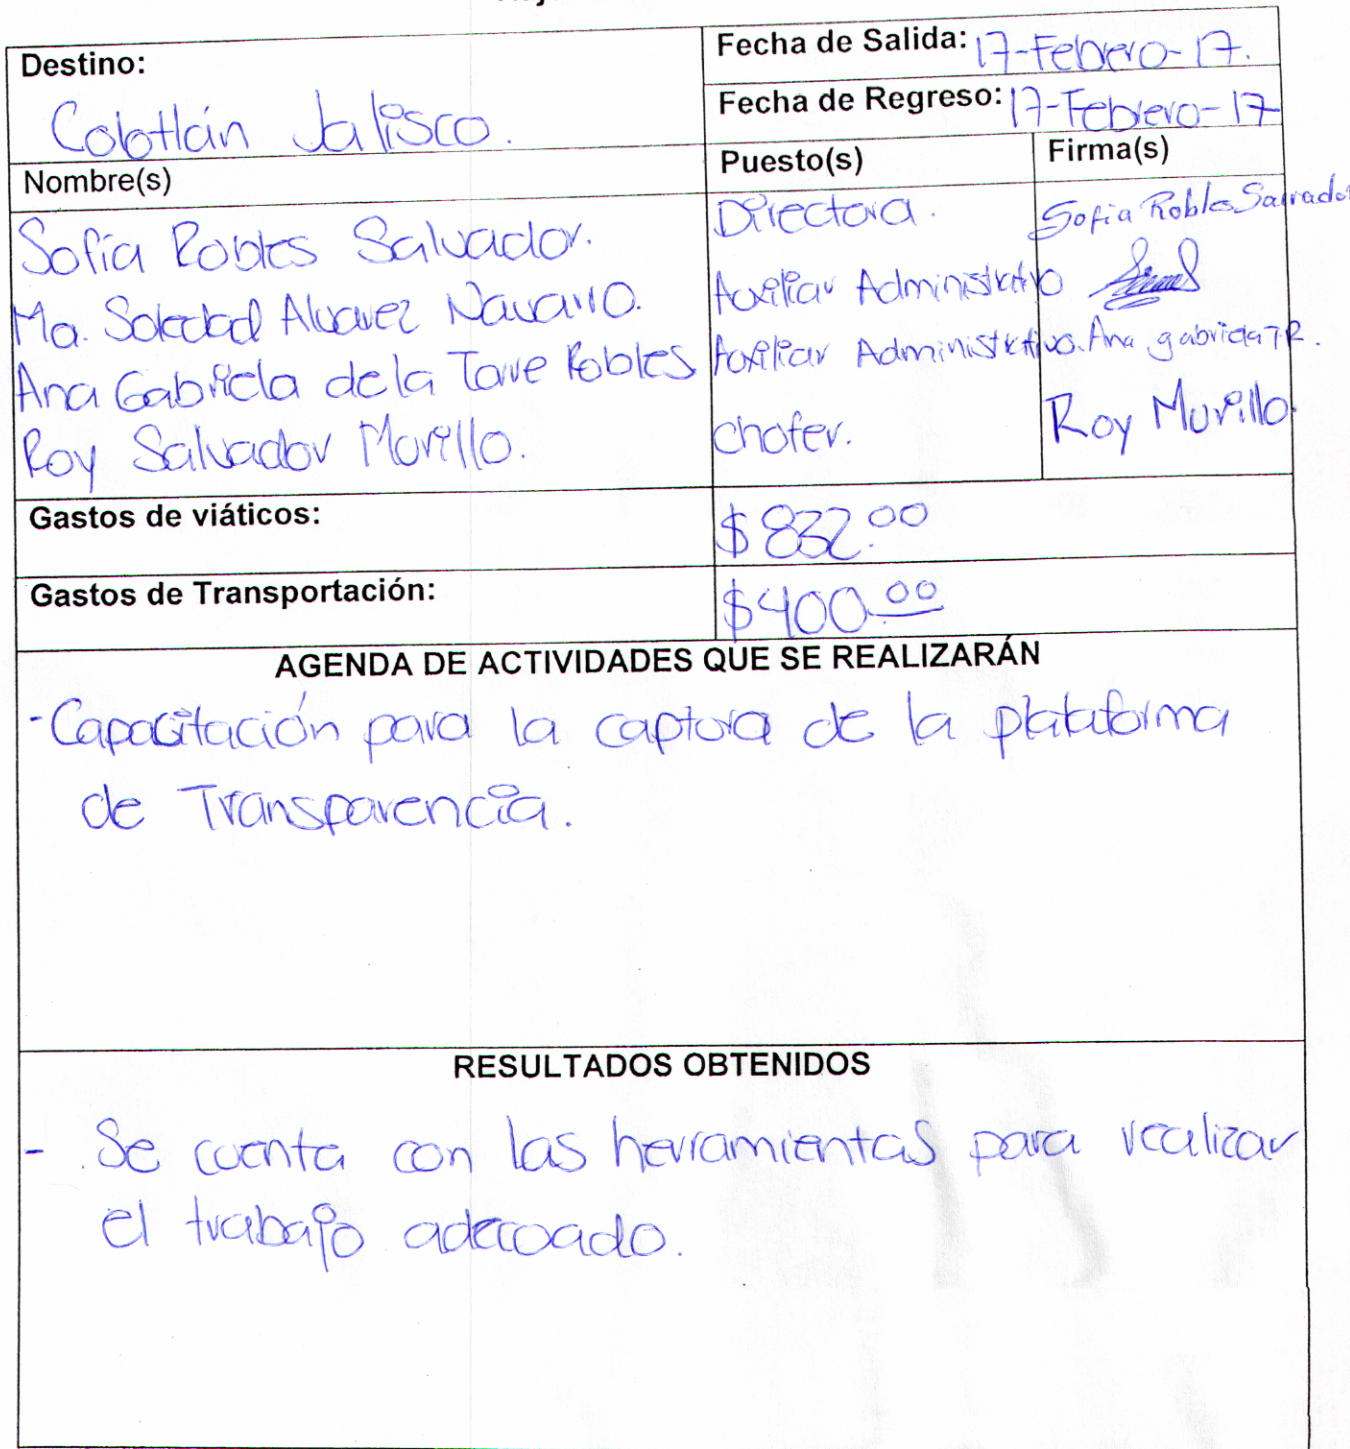 Destino:
Colotlán Jalisco.
Fecha de Salida: 17-Febrero-17.
Fecha de Regreso: 17-Febrero-17
Nombre(s) Puesto(s) Firma(s)
Sofía Robles Salvador. Directora. Sofia Robles Salvador
Ma. Soledad Alvarez Navarro. Auxiliar Administrativo
Ana Gabriela de la Torre Robles Auxiliar Administrativo. Ana gabriela T.R.
Roy Salvador Murillo. chofer. Roy Murillo.
Gastos de viáticos: $832.00
Gastos de Transportación: $400.00
AGENDA DE ACTIVIDADES QUE SE REALIZARÁN
-Capacitación para la captura de la plataforma
de Transparencia.
RESULTADOS OBTENIDOS
- Se cuenta con las herramientas para realizar
el trabajo adecuado.